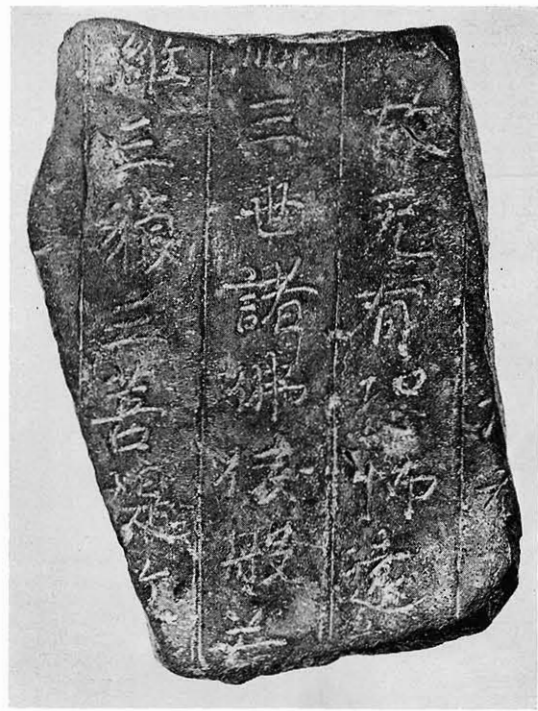 故无有恐怖遠
三世諸佛依般若
羅三藐三菩提